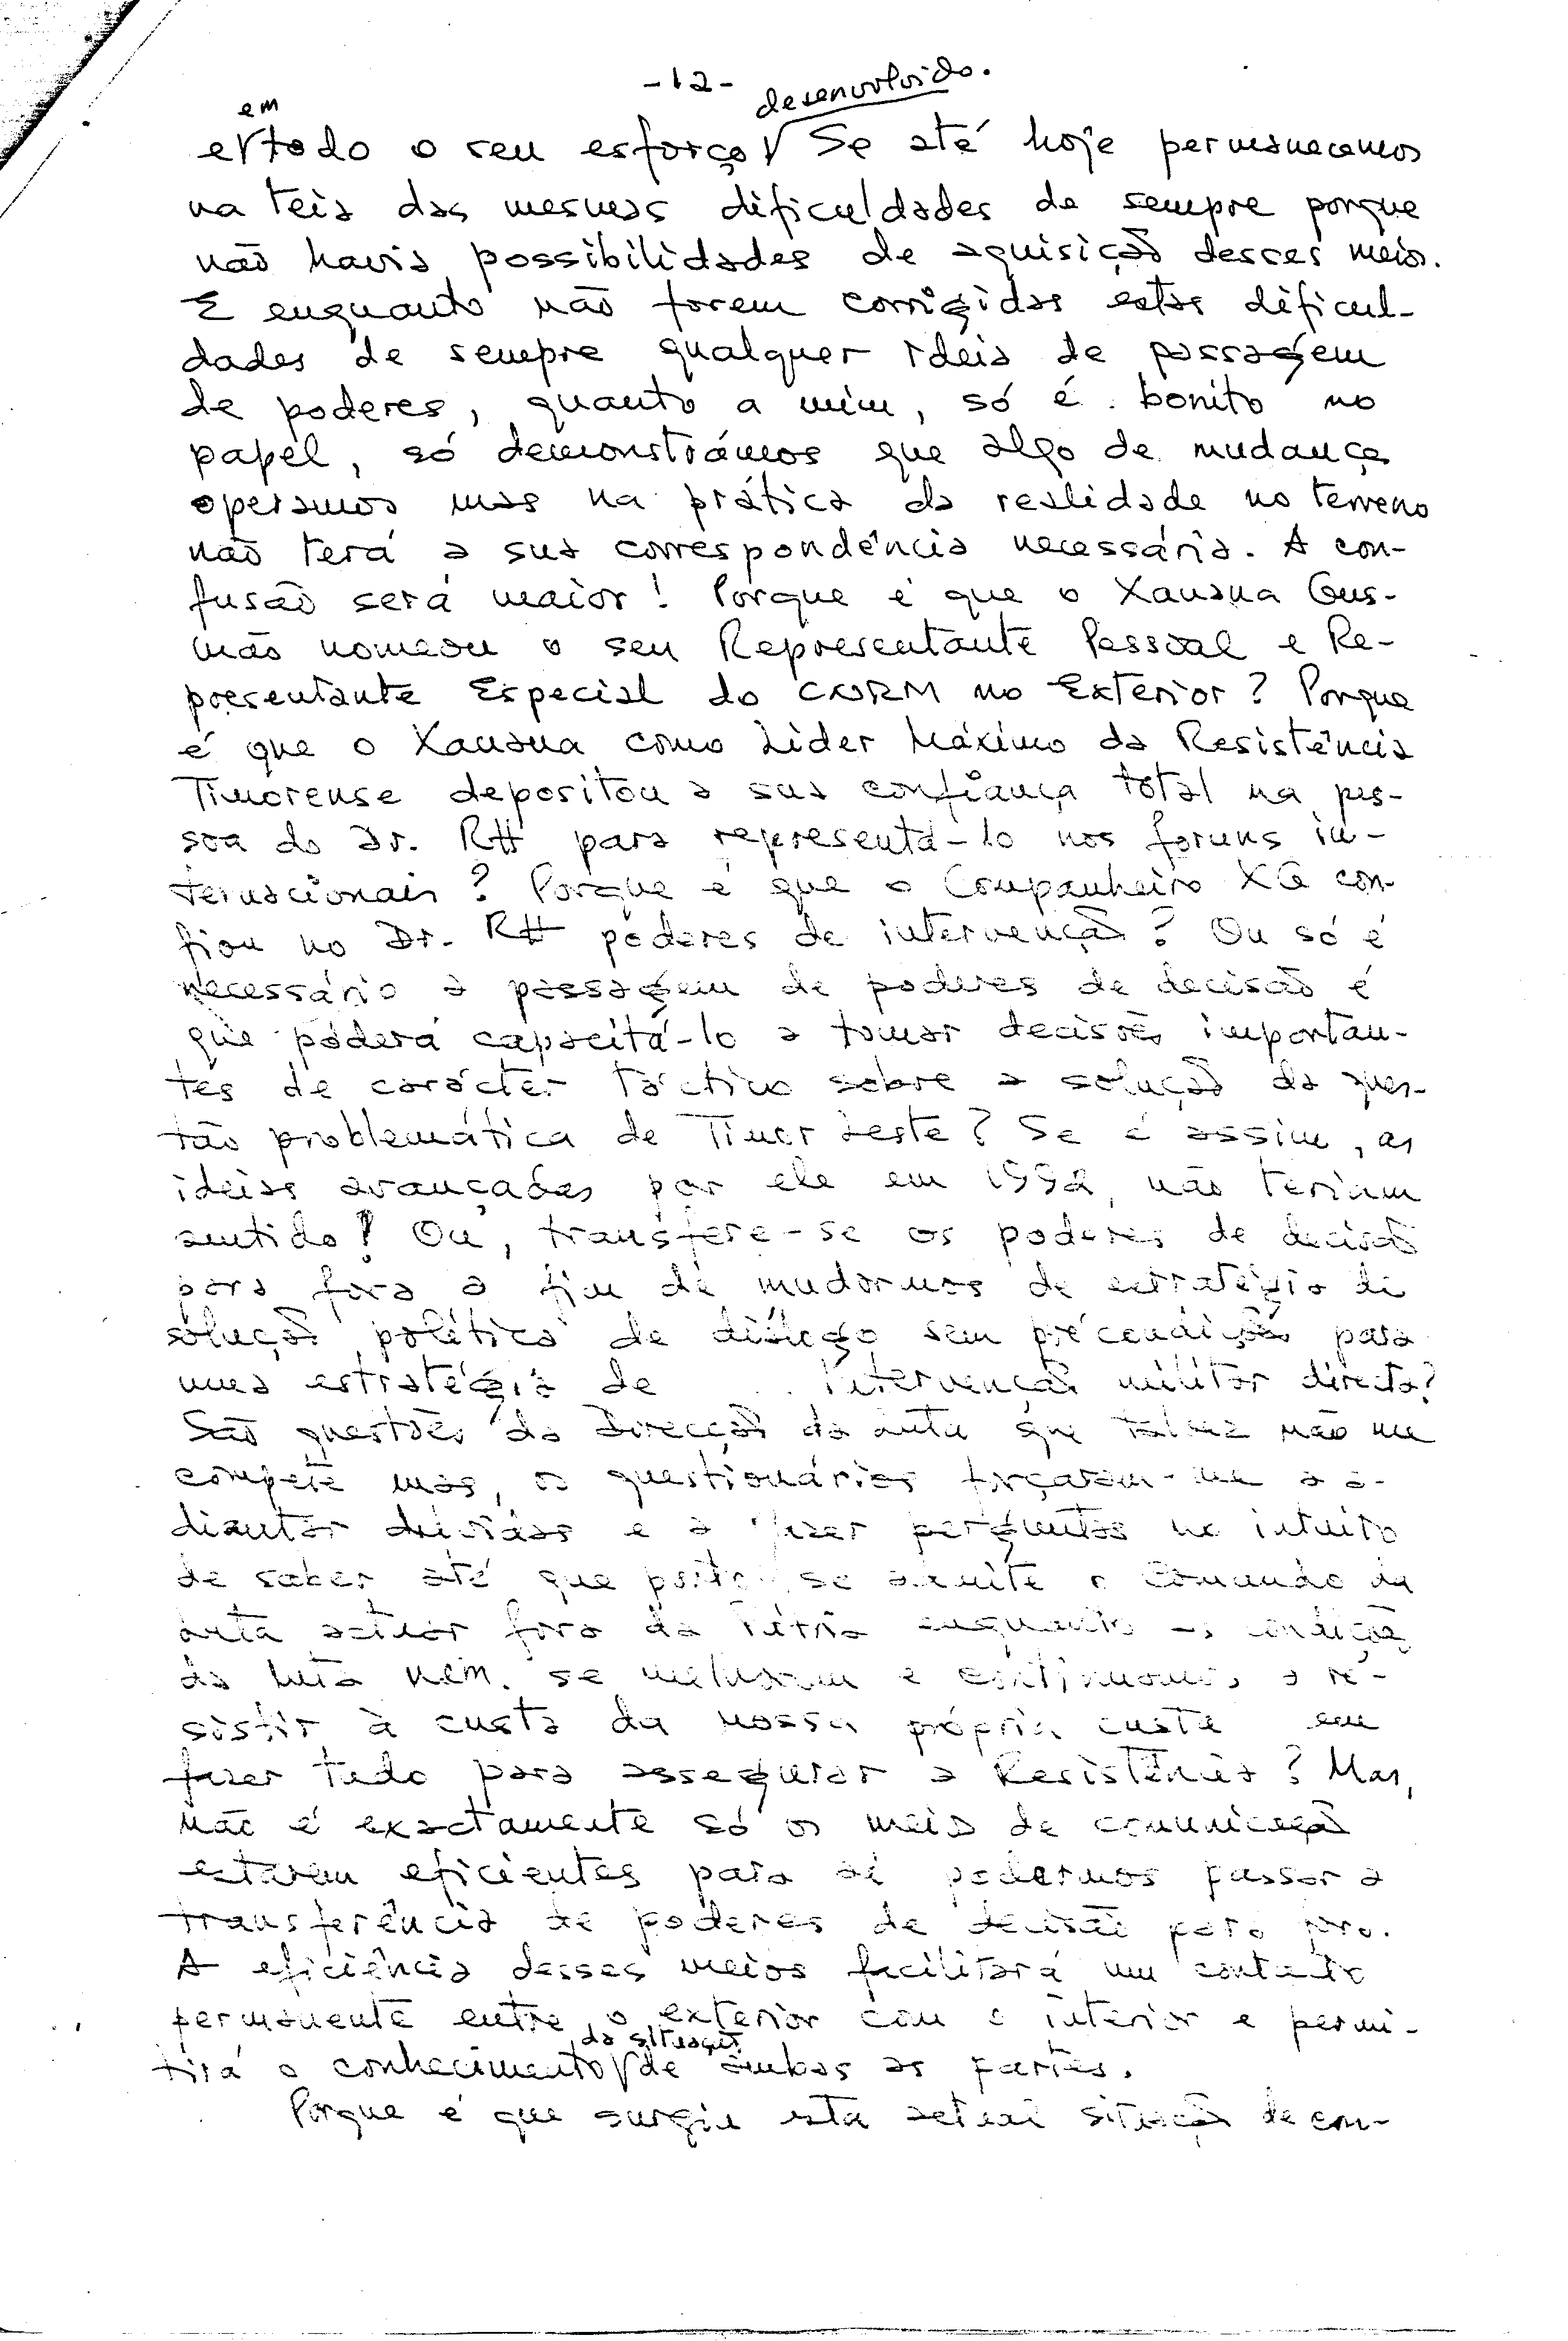 -12-
desenvolvido.
em
e todo o seu esforço Se até hoje permanecemos
na teia das mesmas dificuldades de sempre porque
não havia possibilidades de aquisição desses meios.
E enquanto não forem corrigidas estas dificul-
dades de sempre qualquer ideia de passagem
de poderes, quanto a mim, só é bonito no
papel, só demonstrámos que algo de mudança
operamos mas na prática da realidade no terreno
não terá a sua correspondência necessária. A con-
fusão será maior! Porque é que o Xanana Gus-
mão nomeou o seu Representante Pessoal e Re-
presentante Especial do CNRM no Exterior? Porque
é que o Xanana como Líder Máximo da Resistência
Timorense depositou a sua confiança total na pes-
soa do Dr. RH para representá-lo nos foruns in-
ternacionais? Porque é que o Companheiro XG con-
fiou no Dr. RH poderes de intervenção? Ou só é
necessário a passagem de poderes de decisão é
que poderá capacitá-lo a tomar decisões importan-
tes de carácter táctico sobre a solução da ques-
tão problemática de Timor Leste? Se é assim, as
ideias avançadas por ele em 1992, não teriam
sentido! Ou, transfere-se os poderes de decisão
para fora a fim de mudarmos de estratégia de
solução política de diálogo sem précondições para
uma estratégia de intervenção militar directa?
São questões da Direcção da Luta que talvez não me
compete mas, os questionários forçaram-me a a-
diantar dúvidas e a fazer perguntas no intuito
de saber até que ponto se admite o Comando da
Luta estar fora da Pátria enquanto as condições
da Luta nem se melhoram e continuamos a re-
sistir à custa da nossa própria custa em
fazer tudo para assegurar a Resistência? Mas,
não é exactamente só os meios de comunicação
estarem eficientes para aí podermos passar a
transferência de poderes de decisão para fora.
A eficiência desses meios facilitará um contacto
permanente entre o exterior com o interior e permi-
da situação
tirá o conhecimento de ambas as partes.
Porque é que surgiu esta actual situação de con-